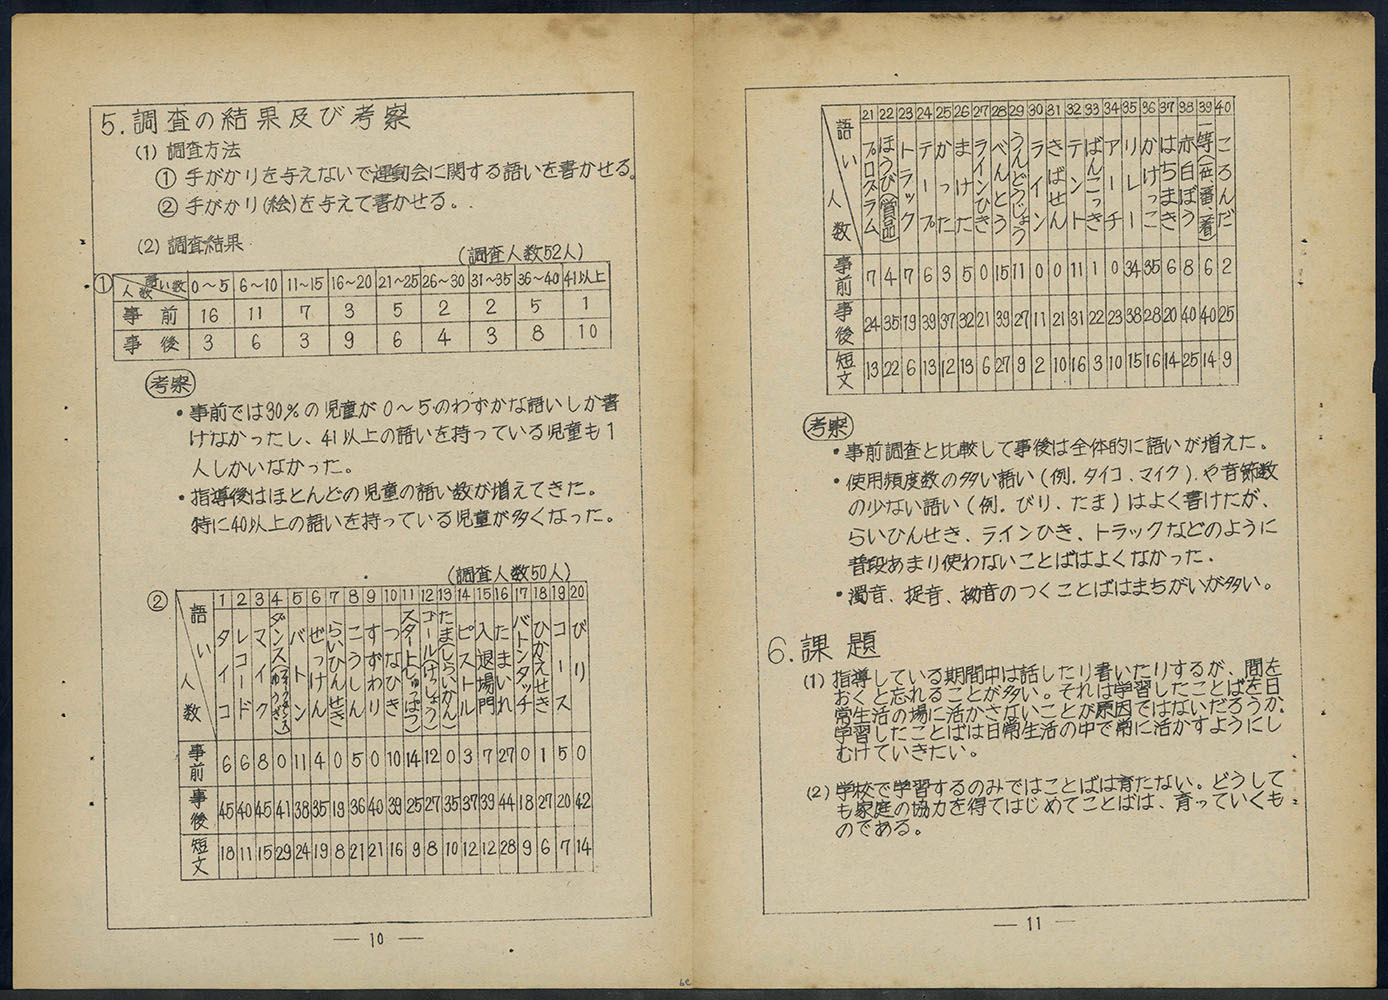 5. 調査の結果及び考察
(1) 調査方法
① 手がかりを与えないで運動会に関する語いを書かせる。
② 手がかり(絵)を与えて書かせる。
(2) 調査結果
(調査人数52人)
① 語い数 人数 0〜5 6〜10 11〜15 16〜20 21〜25 26〜30 31〜35 36〜40 41以上
事前 16 11 7 3 5 2 2 5 1
事後 3 6 3 9 6 4 3 8 10
考察
・事前では30%の児童が0〜5のわずかな語いしか書
けなかったし、41以上の語いを持っている児童も1
人しかいなかった。
・指導後はほとんどの児童の語い数が増えてきた。
特に40以上の語いを持っている児童が多くなった。
(調査人数50人)
② 語い 人数 1 2 3 4 5 6 7 8 9 10 11 12 13 14 15 16 17 18 19 20
タイコ レコード マイク ダンス バトン ぜっけん らいひんせき こうしん すずわり つなひき スタート(しゅっぱつ) ゴール(けっしょう) たましい(らいかん) ピストル 入退場門 たまいれ バトンタッチ ひかえせき コース びり
事前 6 6 8 0 11 4 0 5 0 10 14 12 0 3 7 27 0 1 5 0
事後 45 40 45 41 38 35 19 36 40 39 25 27 35 37 39 44 18 27 20 42
短文 18 11 15 29 24 19 8 21 21 16 9 8 10 12 12 28 9 6 7 14
— 10 —
語い 人数 21 22 23 24 25 26 27 28 29 30 31 32 33 34 35 36 37 38 39 40
プログラム ほうび(賞品) トラック テープ かった まけた ラインひき べんとう うんどうじょう ライン きばせん テント ばんこっき アーチ リレー かけっこ はちまき 赤白ぼう 一等(一番、一着) ころんだ
事前 7 4 7 6 3 5 0 15 11 0 0 11 1 0 34 35 6 8 6 2
事後 24 35 19 39 37 32 21 39 27 11 21 31 22 23 38 28 20 40 40 25
短文 13 22 6 13 12 13 6 27 9 2 10 16 3 10 15 16 14 25 14 9
考察
・事前調査と比較して事後は全体的に語いが増えた。
・使用頻度数の多い語い(例.タイコ、マイク)や音節数
の少ない語い(例.びり、たま)はよく書けたが、
らいひんせき、ラインひき、トラックなどのように
普段あまり使わないことばはよくなかった.
・濁音、促音、拗音のつくことばはまちがいが多い。
6. 課題
(1) 指導している期間中は話したり書いたりするが、間を
おくと忘れることが多い。それは学習したことばを日
常生活の場に活かさないことが原因ではないだろうか.
学習したことばは日常生活の中で常に活かすようにし
むけていきたい。
(2) 学校で学習するのみではことばは育たない。どうして
も家庭の協力を得てはじめてことばは、育っていくも
のである。
— 11 —